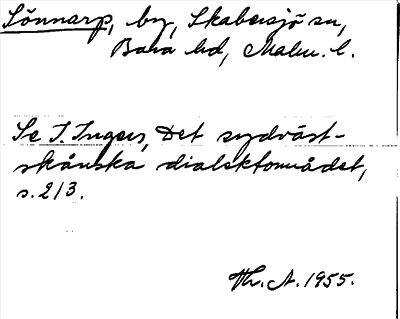 Sönnarp, by, Skabersjö sn,
Bara hd, Malm. l.
Se I. Ingers, Det sydväst-
skånska dialektområdet,
s. 213.
Th. A. 1955.